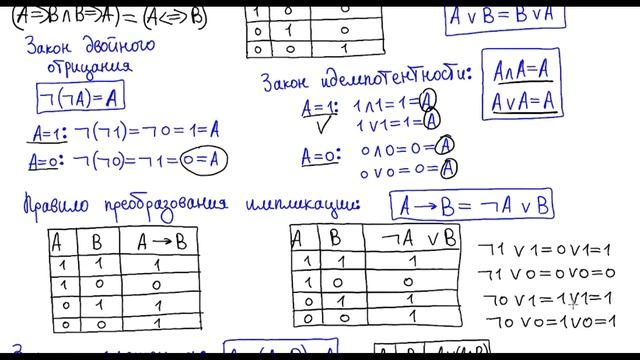 (A⇒B∧B⇒A)=(A⇔B)
1 0 0
0 1 0
0 0 1
A∨B=B∨A
Закон двойного
отрицания
¬(¬A)=A
A=1: ¬(¬1)=¬0=1=A
A=0: ¬(¬0)=¬1=0=A
Закон идемпотентности:
A=1: 1∧1=1=A
1∨1=1=A
A=0: 0∧0=0=A
0∨0=0=A
A∧A=A
A∨A=A
Правило преобразования импликации:
A→B=¬A∨B
A B A→B
1 1 1
1 0 0
0 1 1
0 0 1
A B ¬A∨B
1 1 1
1 0 0
0 1 1
0 0 1
¬1∨1=0∨1=1
¬1∨0=0∨0=0
¬0∨1=1∨1=1
¬0∨0=1∨0=1